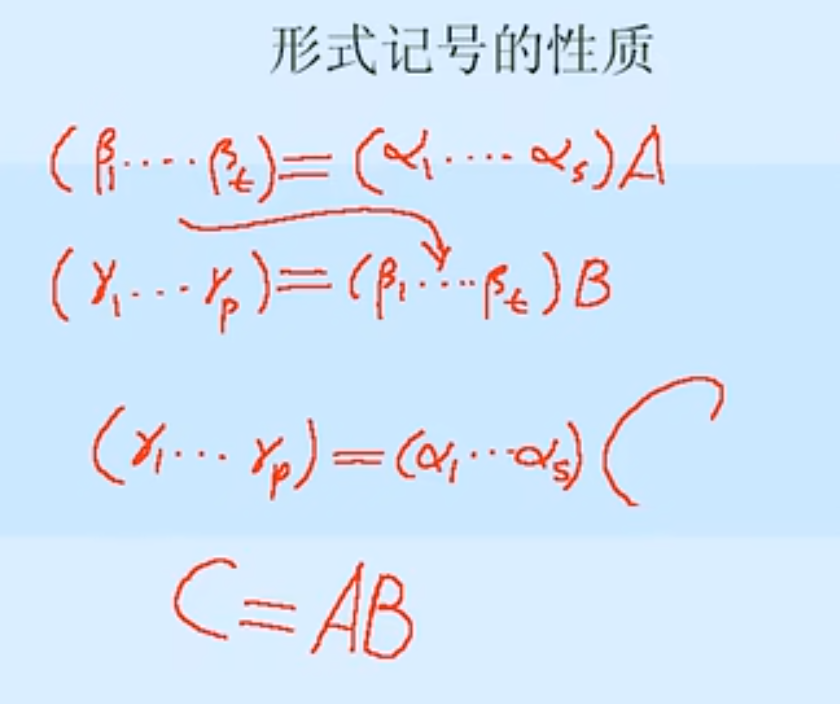 形式记号的性质
(β₁····βₜ)=(α₁····αₛ)A
(γ₁···γₚ)=(β₁···βₜ)B
(γ₁···γₚ)=(α₁···αₛ)C
C=AB